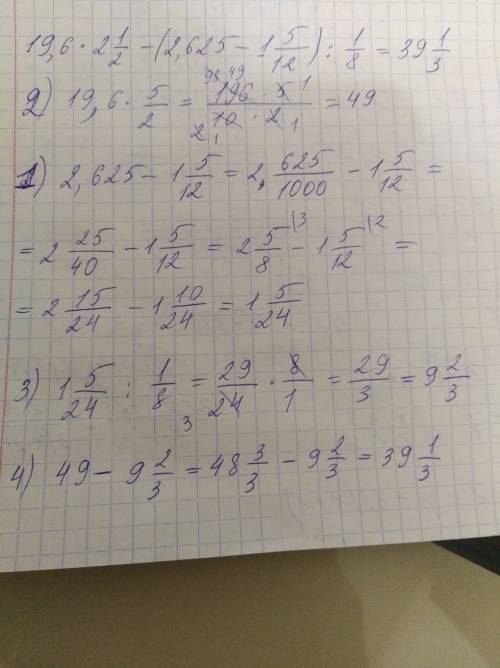 19,6 · 2 1/2 − (2,625 − 1 5/12) : 1/8 = 39 1/3
2) 19,6 · 5/2 = 196 · 5 / 10 · 2 = 49
98 49 1
2 1 1
1) 2,625 − 1 5/12 = 2, 625/1000 − 1 5/12 =
= 2 25/40 − 1 5/12 = 2 5/8 |3 − 1 5/12 |2 =
= 2 15/24 − 1 10/24 = 1 5/24
3) 1 5/24 : 1/8 = 29/24 · 8/1 = 29/3 = 9 2/3
3
4) 49 − 9 2/3 = 48 3/3 − 9 2/3 = 39 1/3